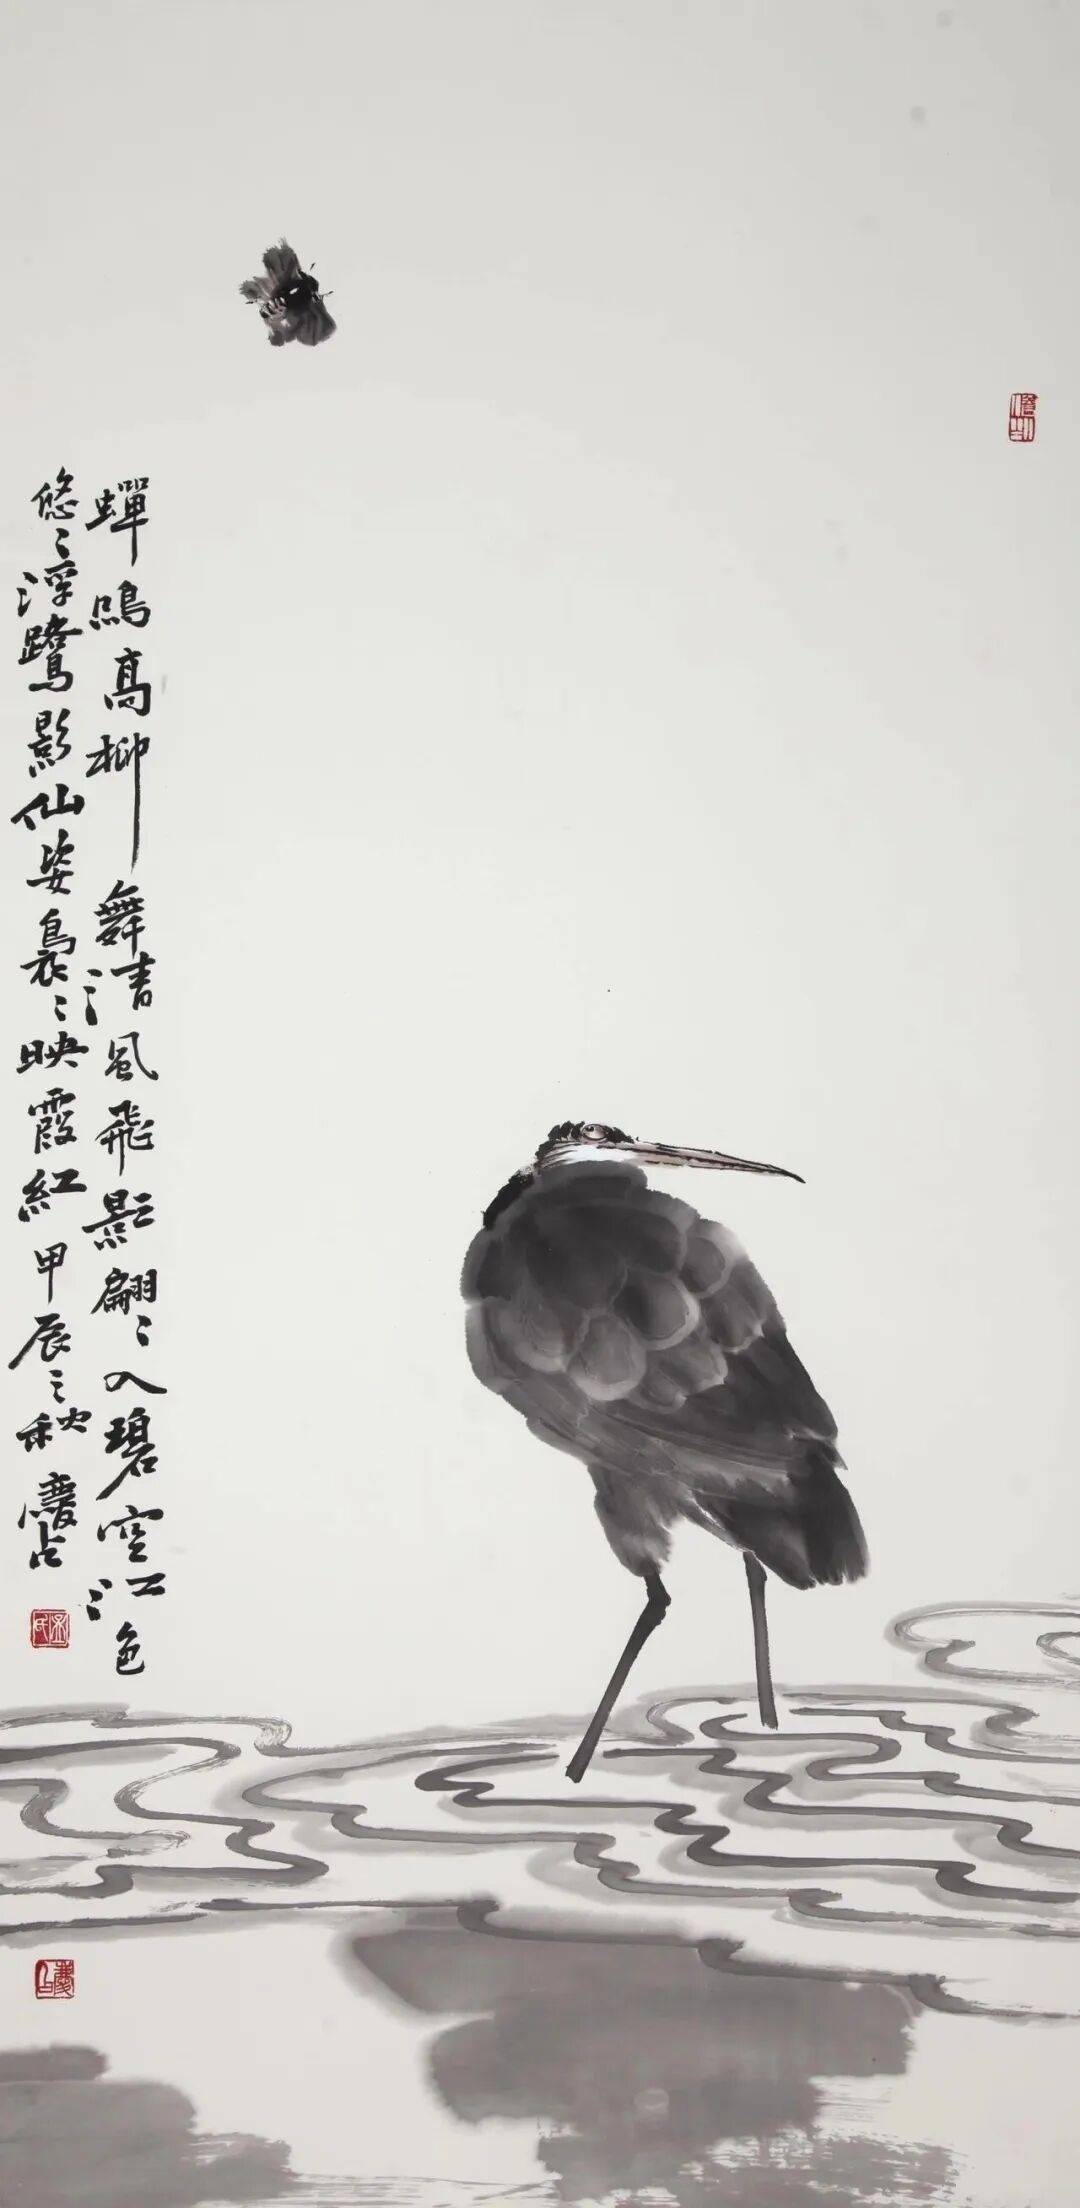 蟬鳴高柳舞清風飛影翩〻入碧空江色
悠〻浮鷺影仙姿裊〻映霞紅甲辰之秋慶占
慶占